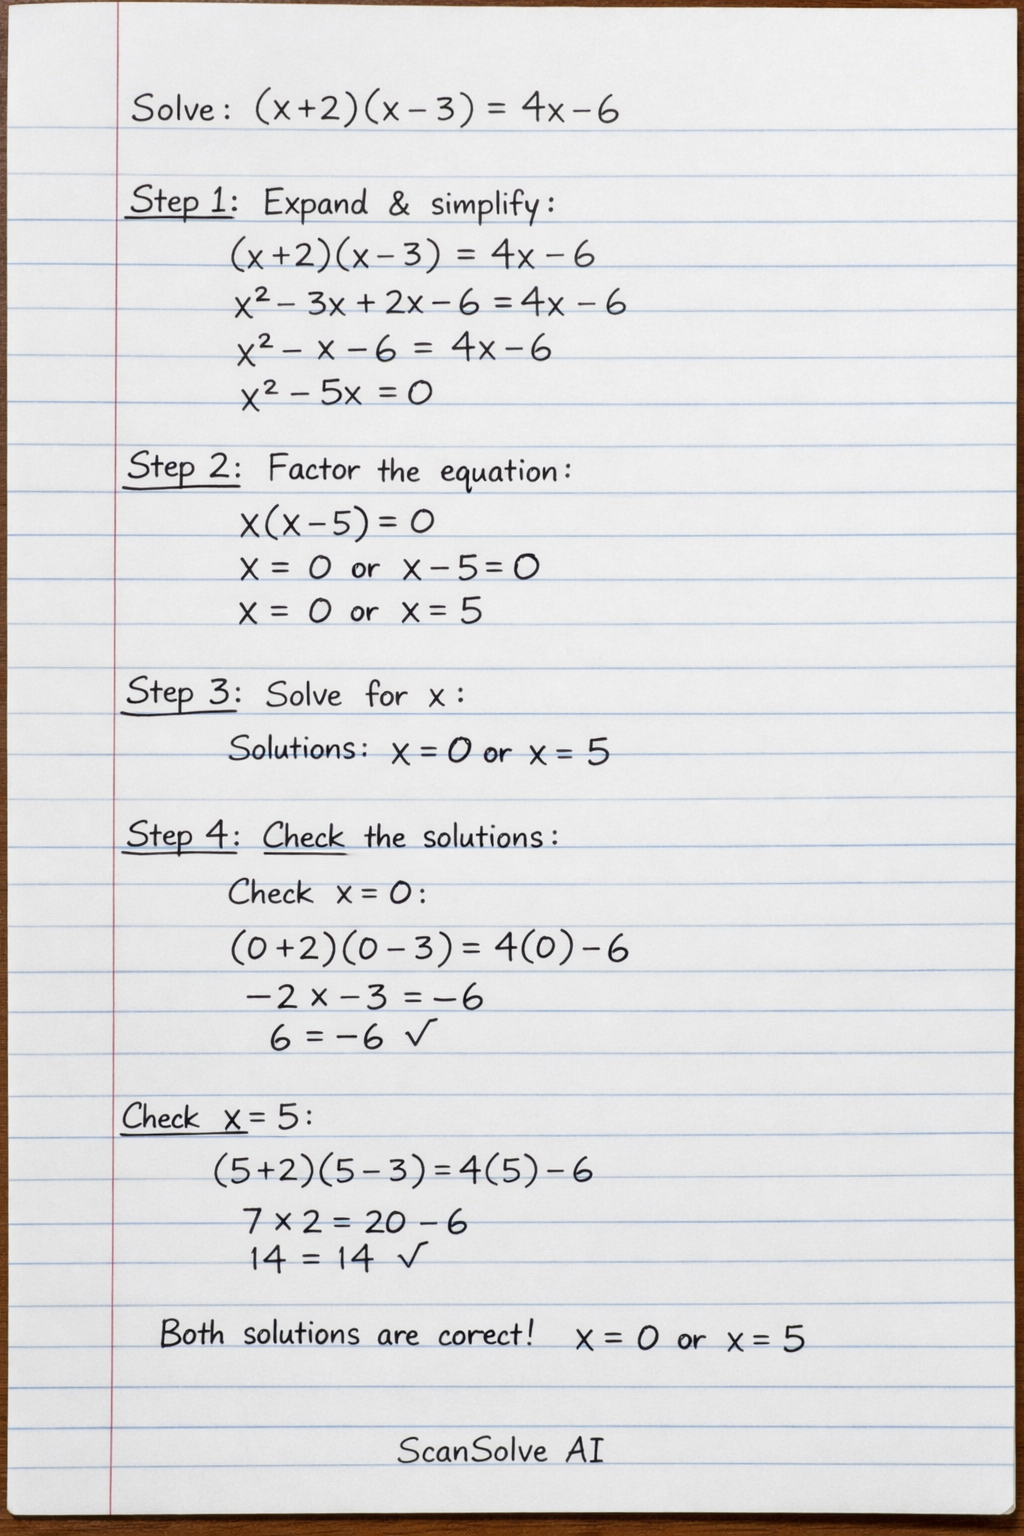 Solve: (x+2)(x-3) = 4x-6
Step 1: Expand & simplify:
(x+2)(x-3) = 4x-6
x² - 3x + 2x - 6 = 4x - 6
x² - x - 6 = 4x-6
x² - 5x = 0
Step 2: Factor the equation:
x(x-5) = 0
x = 0 or x-5=0
x = 0 or x = 5
Step 3: Solve for x:
Solutions: x = 0 or x = 5
Step 4: Check the solutions:
Check x = 0:
(0+2)(0-3) = 4(0)-6
-2 x -3 = -6
6 = -6 √
Check x = 5:
(5+2)(5-3) = 4(5)-6
7 x 2 = 20 - 6
14 = 14 √
Both solutions are corect! x = 0 or x = 5
ScanSolve AI